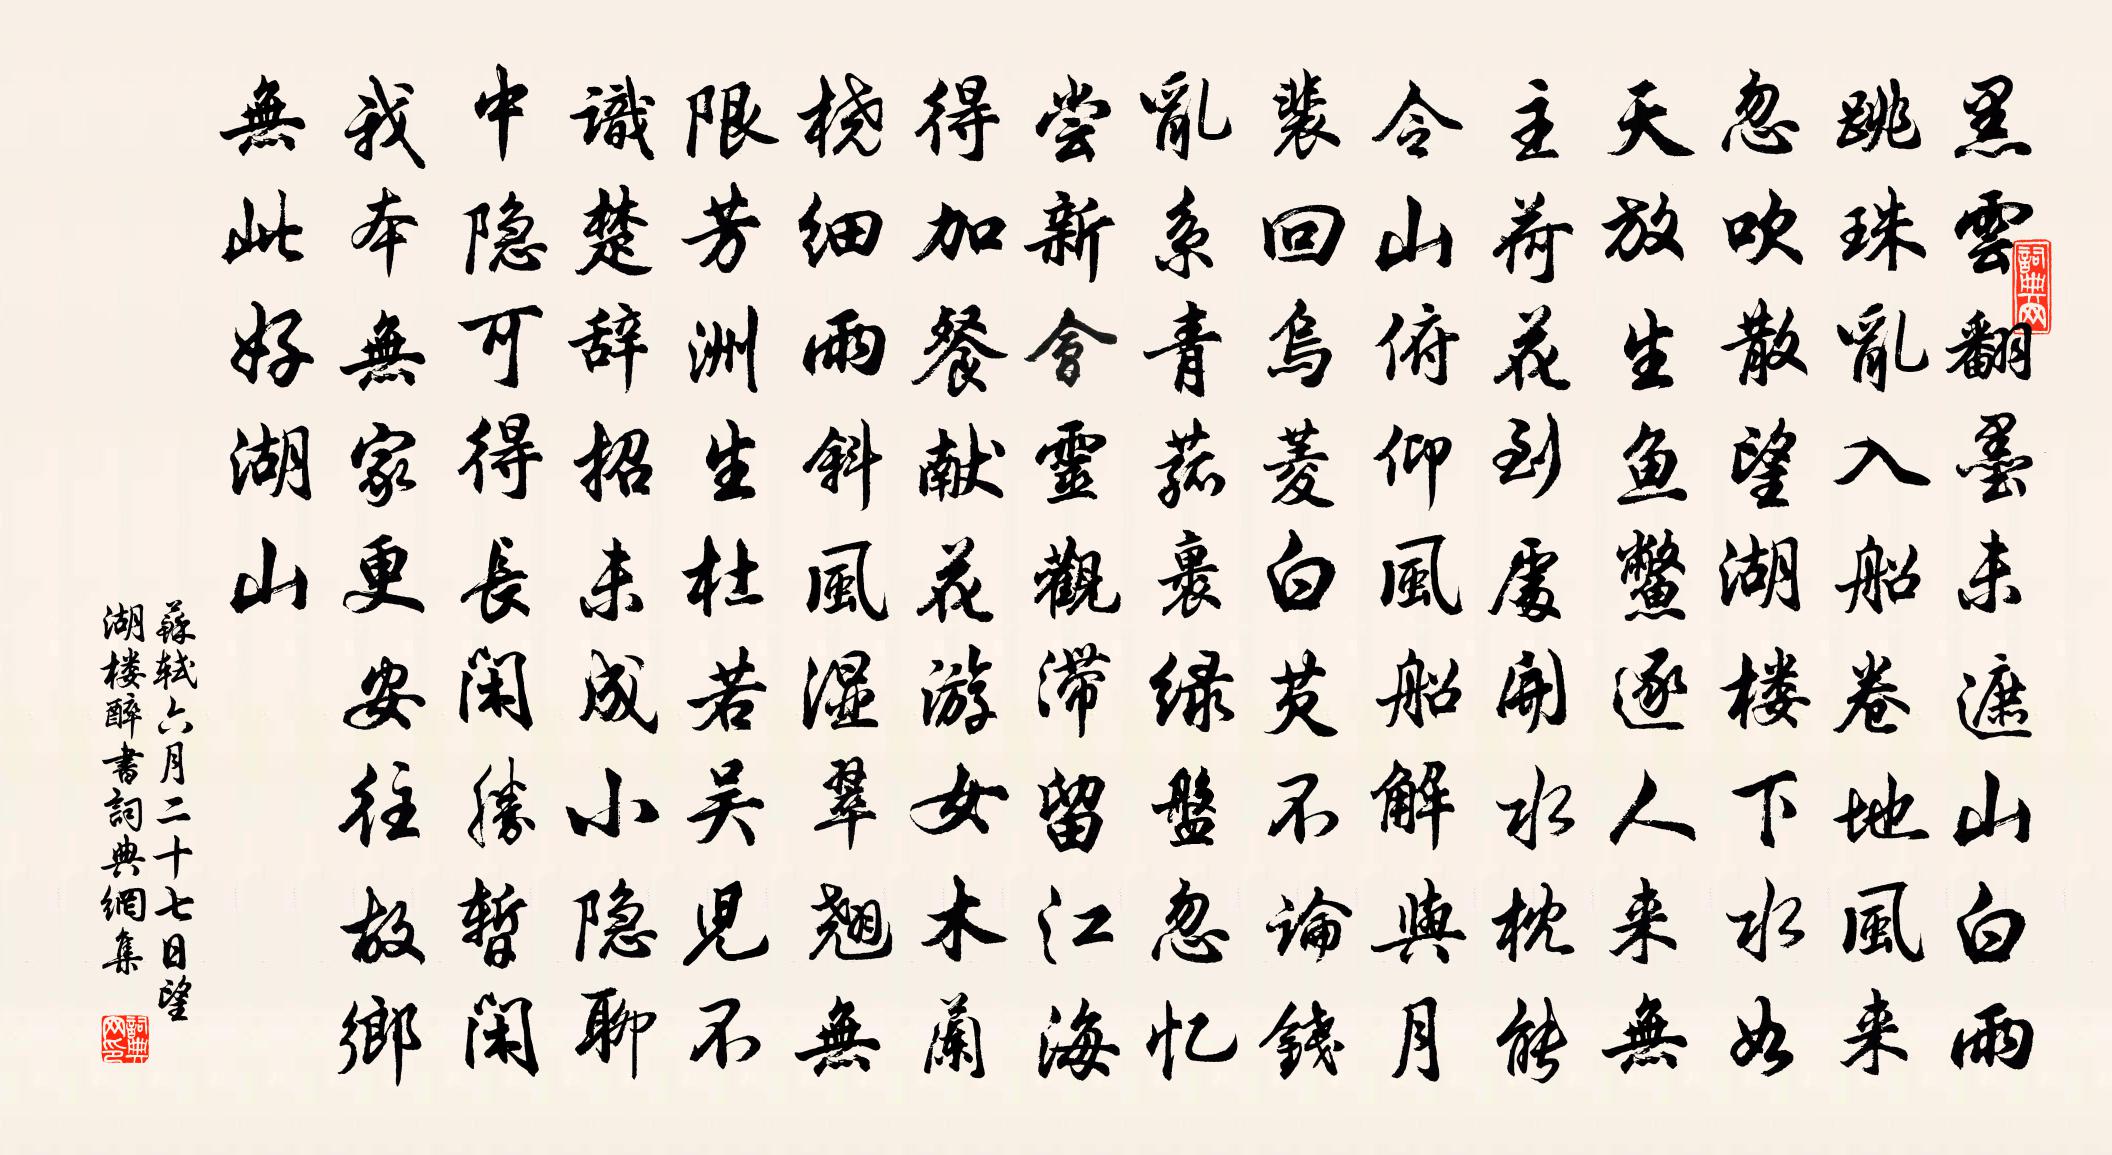 黑雲翻墨未遮山白雨
跳珠亂入船卷地風来
忽吹散望湖楼下水如
天放生鱼鱉逐人来無
主荷花到處開水枕能
令山俯仰風船解與月
裴回烏菱白芡不論錢
亂系青菰裹绿盤忽忆
尝新會靈觀滞留江海
得加餐献花游女木蘭
桡细雨斜風湿翠翘無
限芳洲生杜若吴兒不
識楚辞招未成小隐聊
中隐可得長闲勝暫闲
我本無家更安往故鄉
無此好湖山
蘇轼六月二十七日望
湖楼醉書詞典網集
詞典网
詞典网印